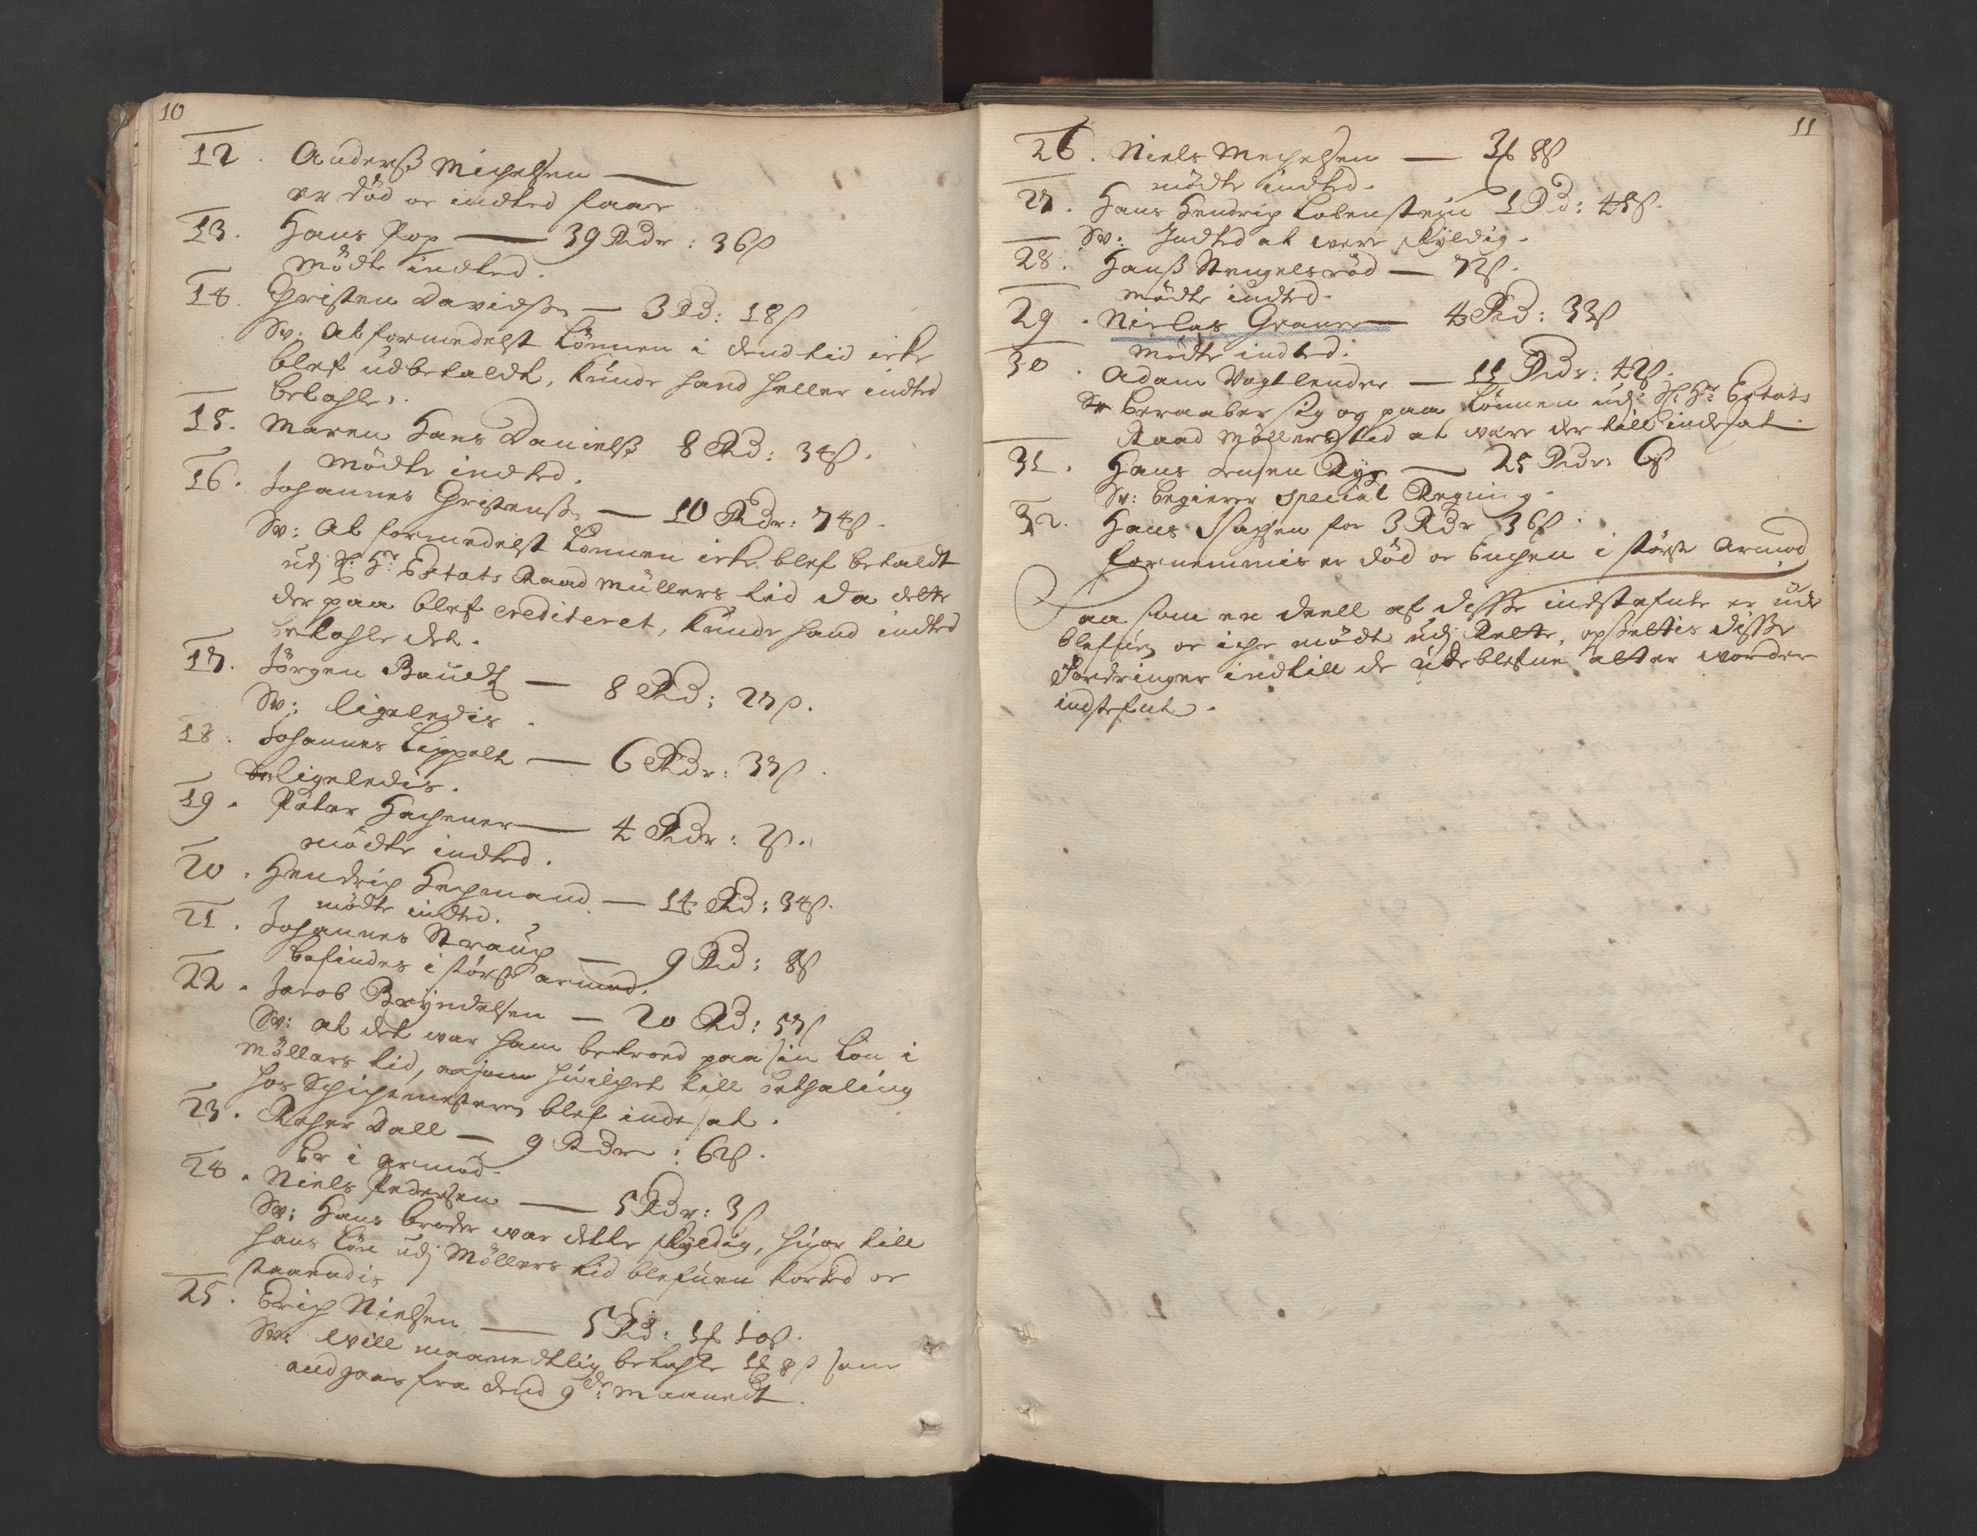 10
12. Anders Michelsen —
er død oc indted faaer
13. Hans Pop — 39 Rdr: 36 ß
Mødte indted.
14. Christen Davidss — 3 Rd: 18 ß
Sv: At formedelst Lønnen i dend tid icke
blef udbetaldt, kunde hand heller indted
betahle.
15. Maren Hans Daniels 8 Rd: 34 ß.
Mødte indted.
16. Johannes Christenss — 10 Rdr: 74 ß.
Sv: At formedelst Lønnen icke blef betaldt
udj Hr Estats Raad Müllers tid da dette
der paa blef crediteret, kunde hand indted
betahle det.
17. Jörgen Baudt — 8 Rd: 27 ß.
Sv: ligeledis.
18. Johannes Lippelt — 6 Rdr: 37 ß.
Sv: ligeledis.
19. Peter Hachener — 4 Rdr: 2 ß.
mødte indted.
20. Hendrich Hechmand — 14 Rd: 34 ß.
mødte indted.
21. Johannes Straup — 9 Rd: 8 ß
befindes i störste armod.
22. Jacob Bryndelsen — 20 Rd: 57 ß
Sv: at det war ham betroed paa sin Løn i
Møllers tid, hvilchet till bethaling
hos Schichtmesteren blef indesat.
23. Dall — 9 Rdr: 62 ß.
Er i armod.
24. Niels Pedersen — 5 Rdr: 3 ß
Sv: Hans broder war dette skyldig, huor till
hans Løn udj Møllers tid blefuen kortted oc
staaendis
25. Erich Nielsen — 5 Rd: 1 10 ß.
Sv: Will maanedtlig betahle 1 8 ß som
andgaar fra dend 9de Maanedt.
11
26. Niels Mechelsen — 3 8 ß
mødte indted.
27. Hans Hendrich Lobenstein 1 Rd: 48 ß.
Sv: Indted at were skyldig.
28. Hans Stengelsrød — 72 ß.
Mødte indted.
29. Niclas Graue — 4 Rd: 33 ß
Mødte indted.
30. Adam Vogtlender — 11 Rdr: 42 ß.
Sv beraaber sig og paa Lønnen udj Hr Estats
Raad Møllers tid at være der till indesat.
31. Hans Jensen Ryg — 25 Rdr: 6 ß
Sv: begierer special Regning.
32. Hans Isachsen for 3 Rdr 36 ß.
fornemmis er død oc Enchen i störste Armod
Saa som en deell af disse indstefnte er ude
blefuen oc iche mødt udj Rette, opsettis disse
Fordringer indtill de udeblefne atter worder
indstefnte.